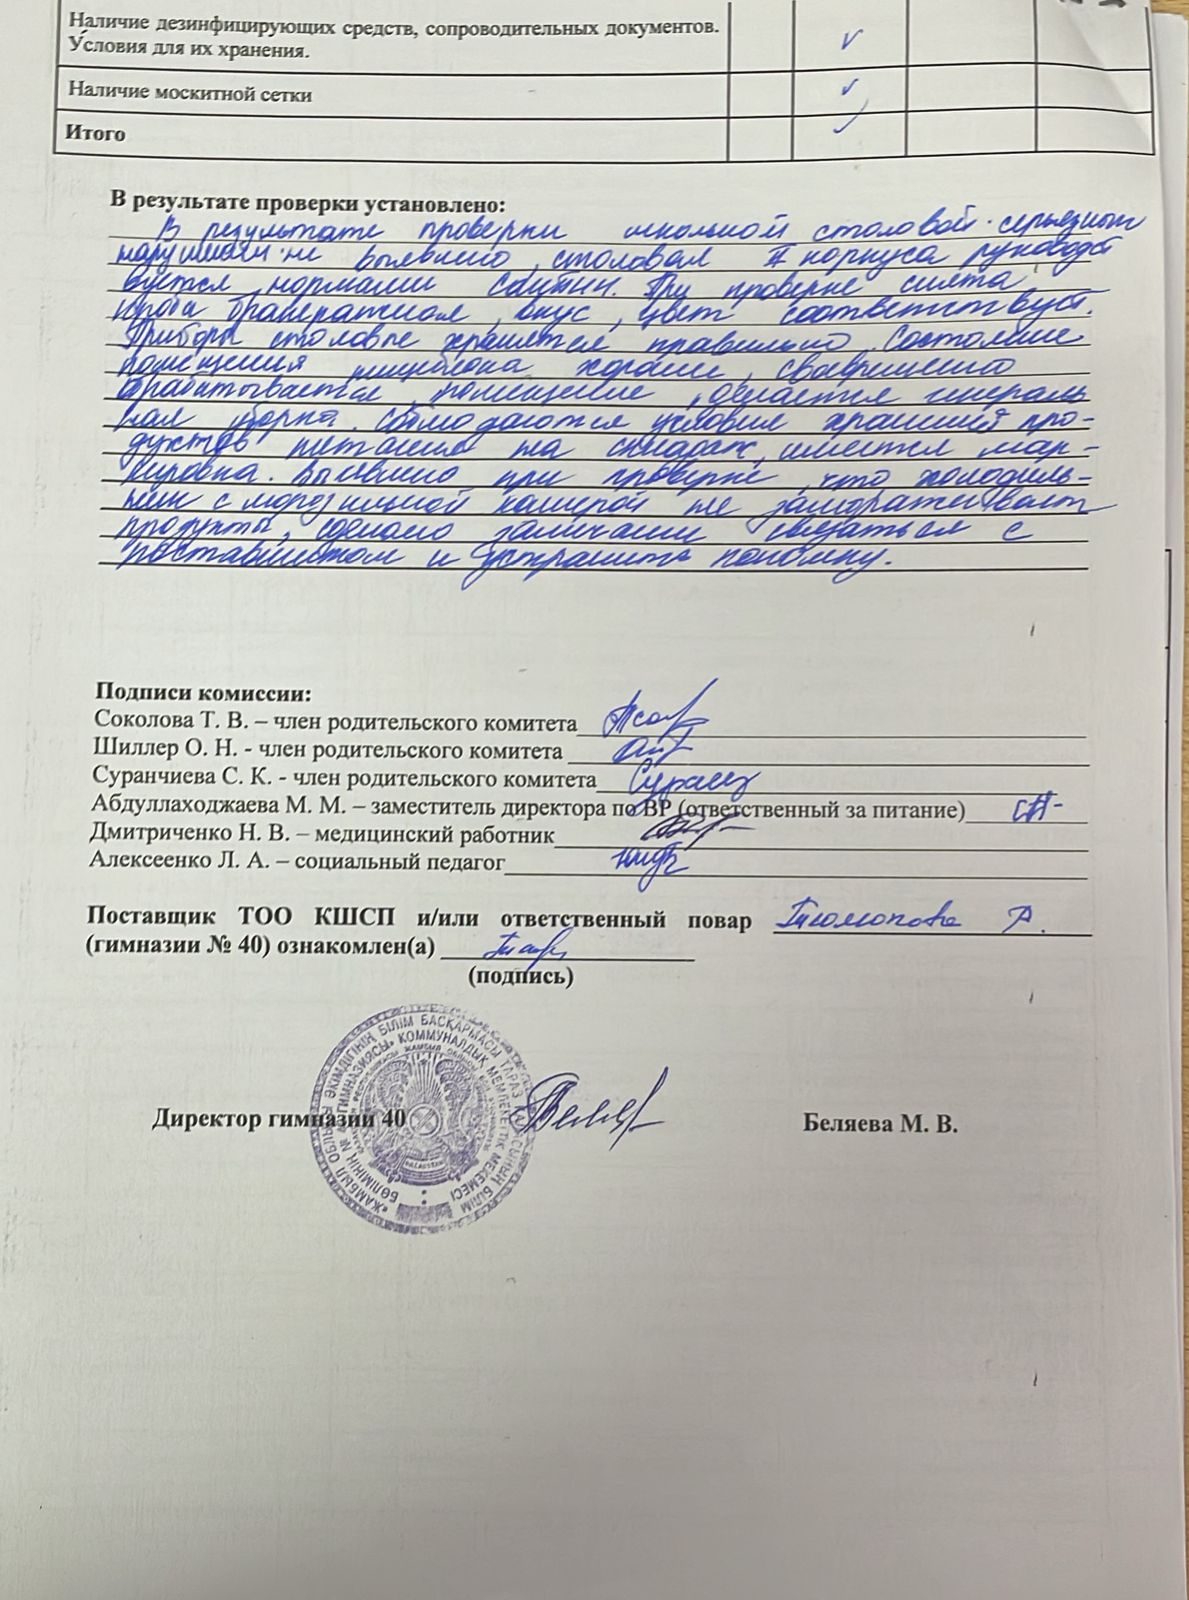 Наличие дезинфицирующих средств, сопроводительных документов.
Условия для их хранения.
Наличие москитной сетки
Итого
В результате проверки установлено:
В результате проверки школьной столовой серьезных
нарушений не выявлено, столовая II корпуса руководст
вуется нормами СанПин. При проверке снята
проба бракеражная, вкус, цвет соответствует.
Приборы столовые хранятся правильно. Состояние
помещения пищеблока хорошее, своевременно
обрабатывается помещение, делается генераль
ная уборка. Соблюдаются условия хранения про-
дуктов питания на складах, имеется мар-
кировка. Выявлено при проверке, что холодиль-
ник с морозильной камерой не замораживает
продукты, сделано замечание связаться с
поставщиком и устранить поломку.
Подписи комиссии:
Соколова Т. В. – член родительского комитета
Шиллер О. Н. - член родительского комитета
Суранчиева С. К. - член родительского комитета
Абдуллаходжаева М. М. – заместитель директора по ВР (ответственный за питание)
Дмитриченко Н. В. – медицинский работник
Алексеенко Л. А. – социальный педагог
Поставщик ТОО КШСП и/или ответственный повар
(гимназии № 40) ознакомлен(а)
(подпись)
Директор гимназии 40 Беляева М. В.
ЖАМБЫЛ ОБЛЫСЫ ӘКІМДІГІНІҢ БІЛІМ БАСҚАРМАСЫ ТАРАЗ ҚАЛАСЫНЫҢ БІЛІМ
БӨЛІМІНІҢ № ГИМНАЗИЯСЫ» КОММУНАЛДЫҚ МЕМЛЕКЕТТІК МЕКЕМЕСІ